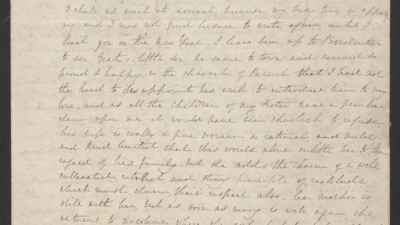 I shall not wait as usual, because my busy time is approaching
and I may not find leisure to write again, until I
hail you on the New Year. I have been up to
to see little son, he came to town and seemed so
proud & happy in the character of Parent that I had not
the heart to disappoint his wish to introduce him to my
love, and as all the children of my sister have a peculiar
claim upon me it would have been churlish to refuse
his wife is really a fine woman, so natural and
and kind hearted that this would alone entitle her to the
regard of his family, but she adds the charm of a well
cultivated intellect and those principles of rectitude
which must claim their respect also. Her mother is
still with her, but as soon as is well again she
returns to